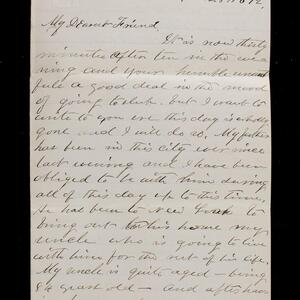 My Dearest Friend
It is now thirty
minutes after ten in the eve
ning and your humble
feels a good deal in the mood
of going to bed. but I want to
write to you ere this day is wholly
gone and I will do so. My father
has been in this city ever since
last evening and I have been
obliged to be with him during
all of this day up to this time,
he has been to New York to
bring out to his home my
uncle who is going to live
with him for the rest of his life.
My uncle is quite aged – being
84 years old – and